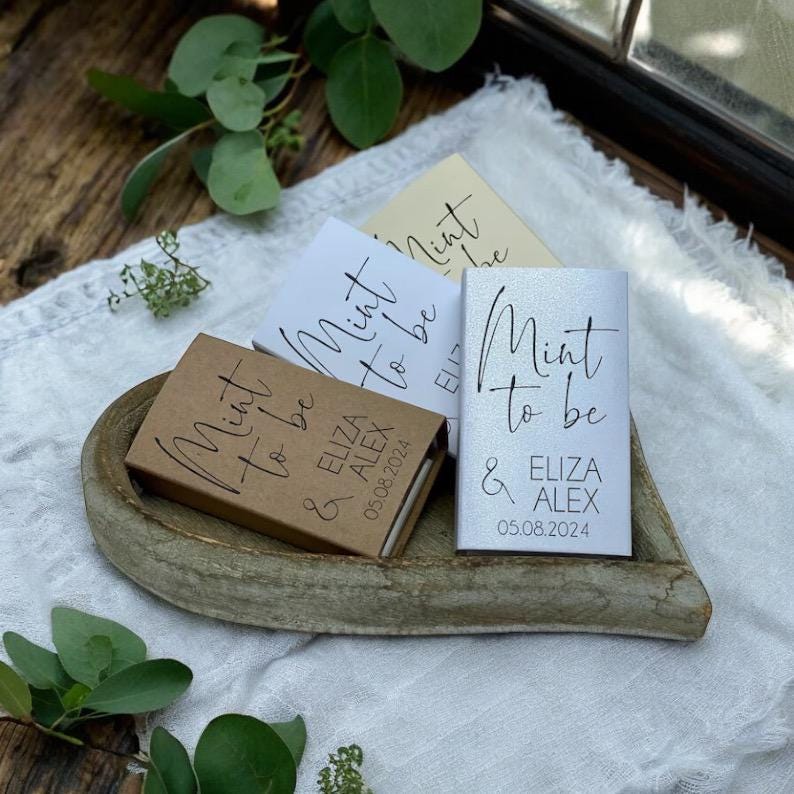 Mint
to be
Mint
to be
ELIZ
Mint
to be
& ELIZA
ALEX
05.08.2024
Mint
to be
& ELIZA
ALEX
05.08.2024